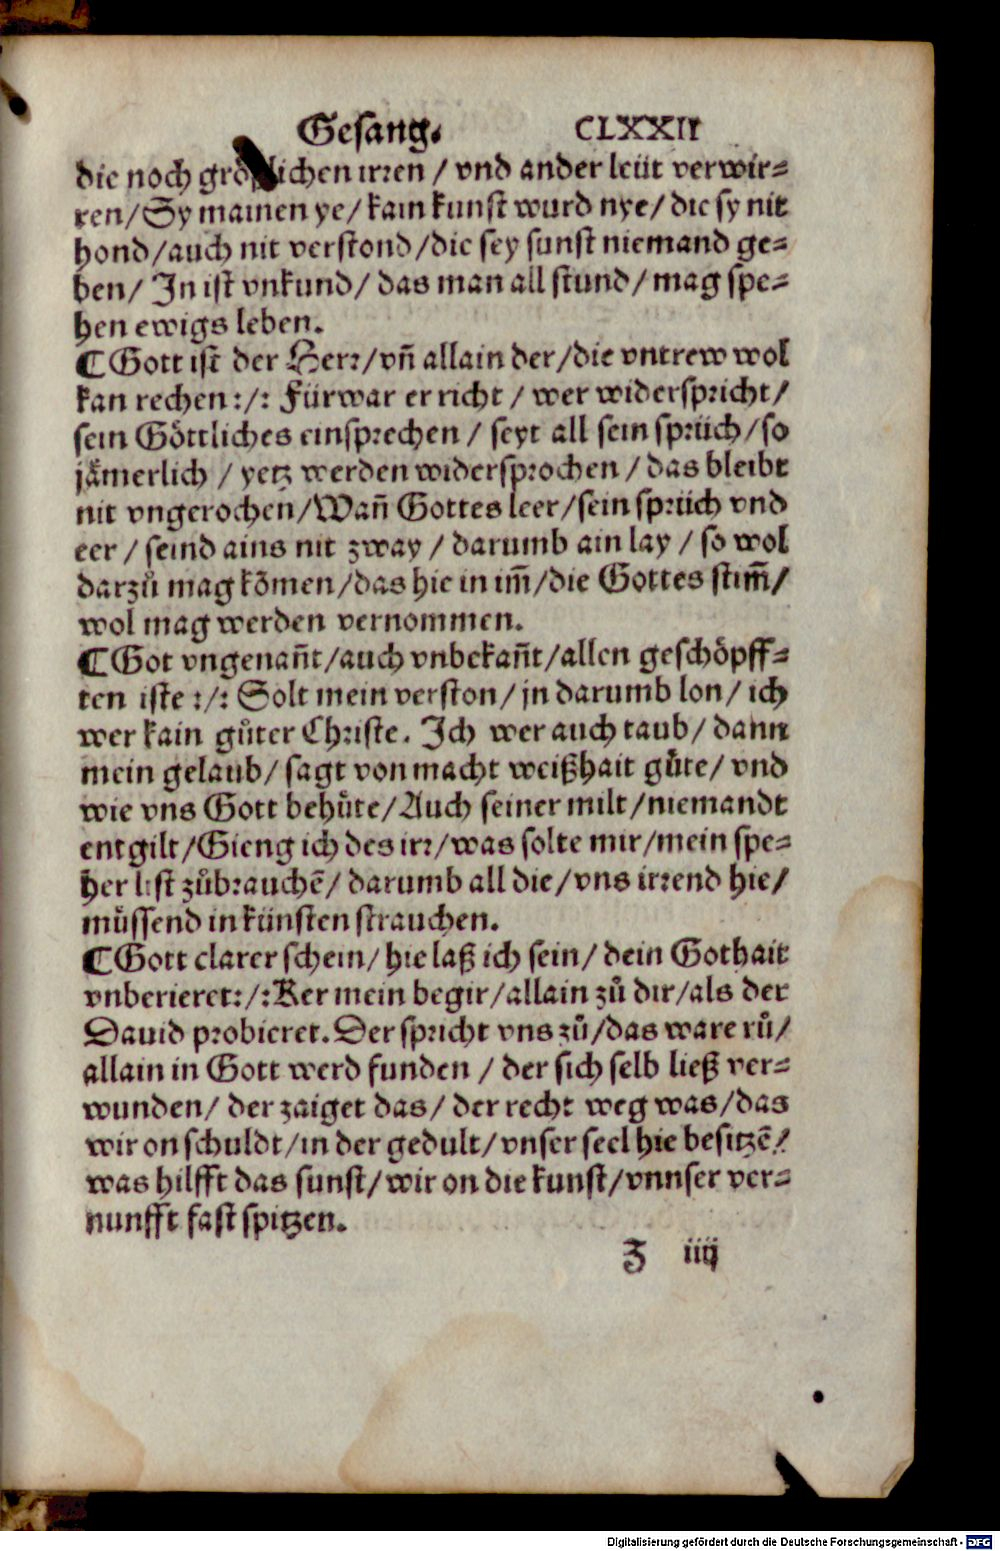 Gesang. CLXXII
die noch größlichen irren / vnd ander leüt verwir⸗
ren/Sy mainen ye/ kain kunst wurd nye/ die sy nit
hond/auch nit verstond/die sey sunst niemand ge⸗
ben/ In ist vnkund/ das man all stund/ mag spe⸗
hen ewigs leben.
¶Gott ist der Herr/vñ allain der/die vntrew wol
kan rechen:/: Fürwar er richt / wer widerspricht/
sein Göttliches einsprechen / seyt all sein sprüch/so
jämerlich / yetz werden widersprochen / das bleibt
nit vngerochen/Wañ Gottes leer/sein sprüch vnd
eer / seind ains nit zway / darumb ain lay / so wol
darzů mag kõmen/das hie in im̃/die Gottes stim̃/
wol mag werden vernommen.
¶Got vngenañt/auch vnbekañt/allen geschöpff⸗
ten iste :/: Solt mein verston/jn darumb lon/ ich
wer kain gůter Christe. Ich wer auch taub/ dann
mein gelaub/ sagt von macht weißhait gůte/ vnd
wie vns Gott behůte/Auch seiner milt/niemandt
entgilt/Gieng ich des irr/was solte mir/mein spe⸗
her list zůbrauchẽ/ darumb all die/vns irrend hie/
můssend in künsten strauchen.
¶Gott clarer schein/ hie laß ich sein/ dein Gothait
vnberieret:/:Ker mein begir/allain zů dir/als der
Dauid probieret.Der spricht vns zů/das ware rů/
allain in Gott werd funden / der sich selb ließ ver⸗
wunden/ der zaiget das/ der recht weg was/das
wir on schuldt/in der gedult/vnser seel hie besitzẽ/
was hilfft das sunst/wir on die kunst/vnnser ver⸗
nunfft fast spitzen.
Z iiij
Digitalisierung gefördert durch die Deutsche Forschungsgemeinschaft - DFG